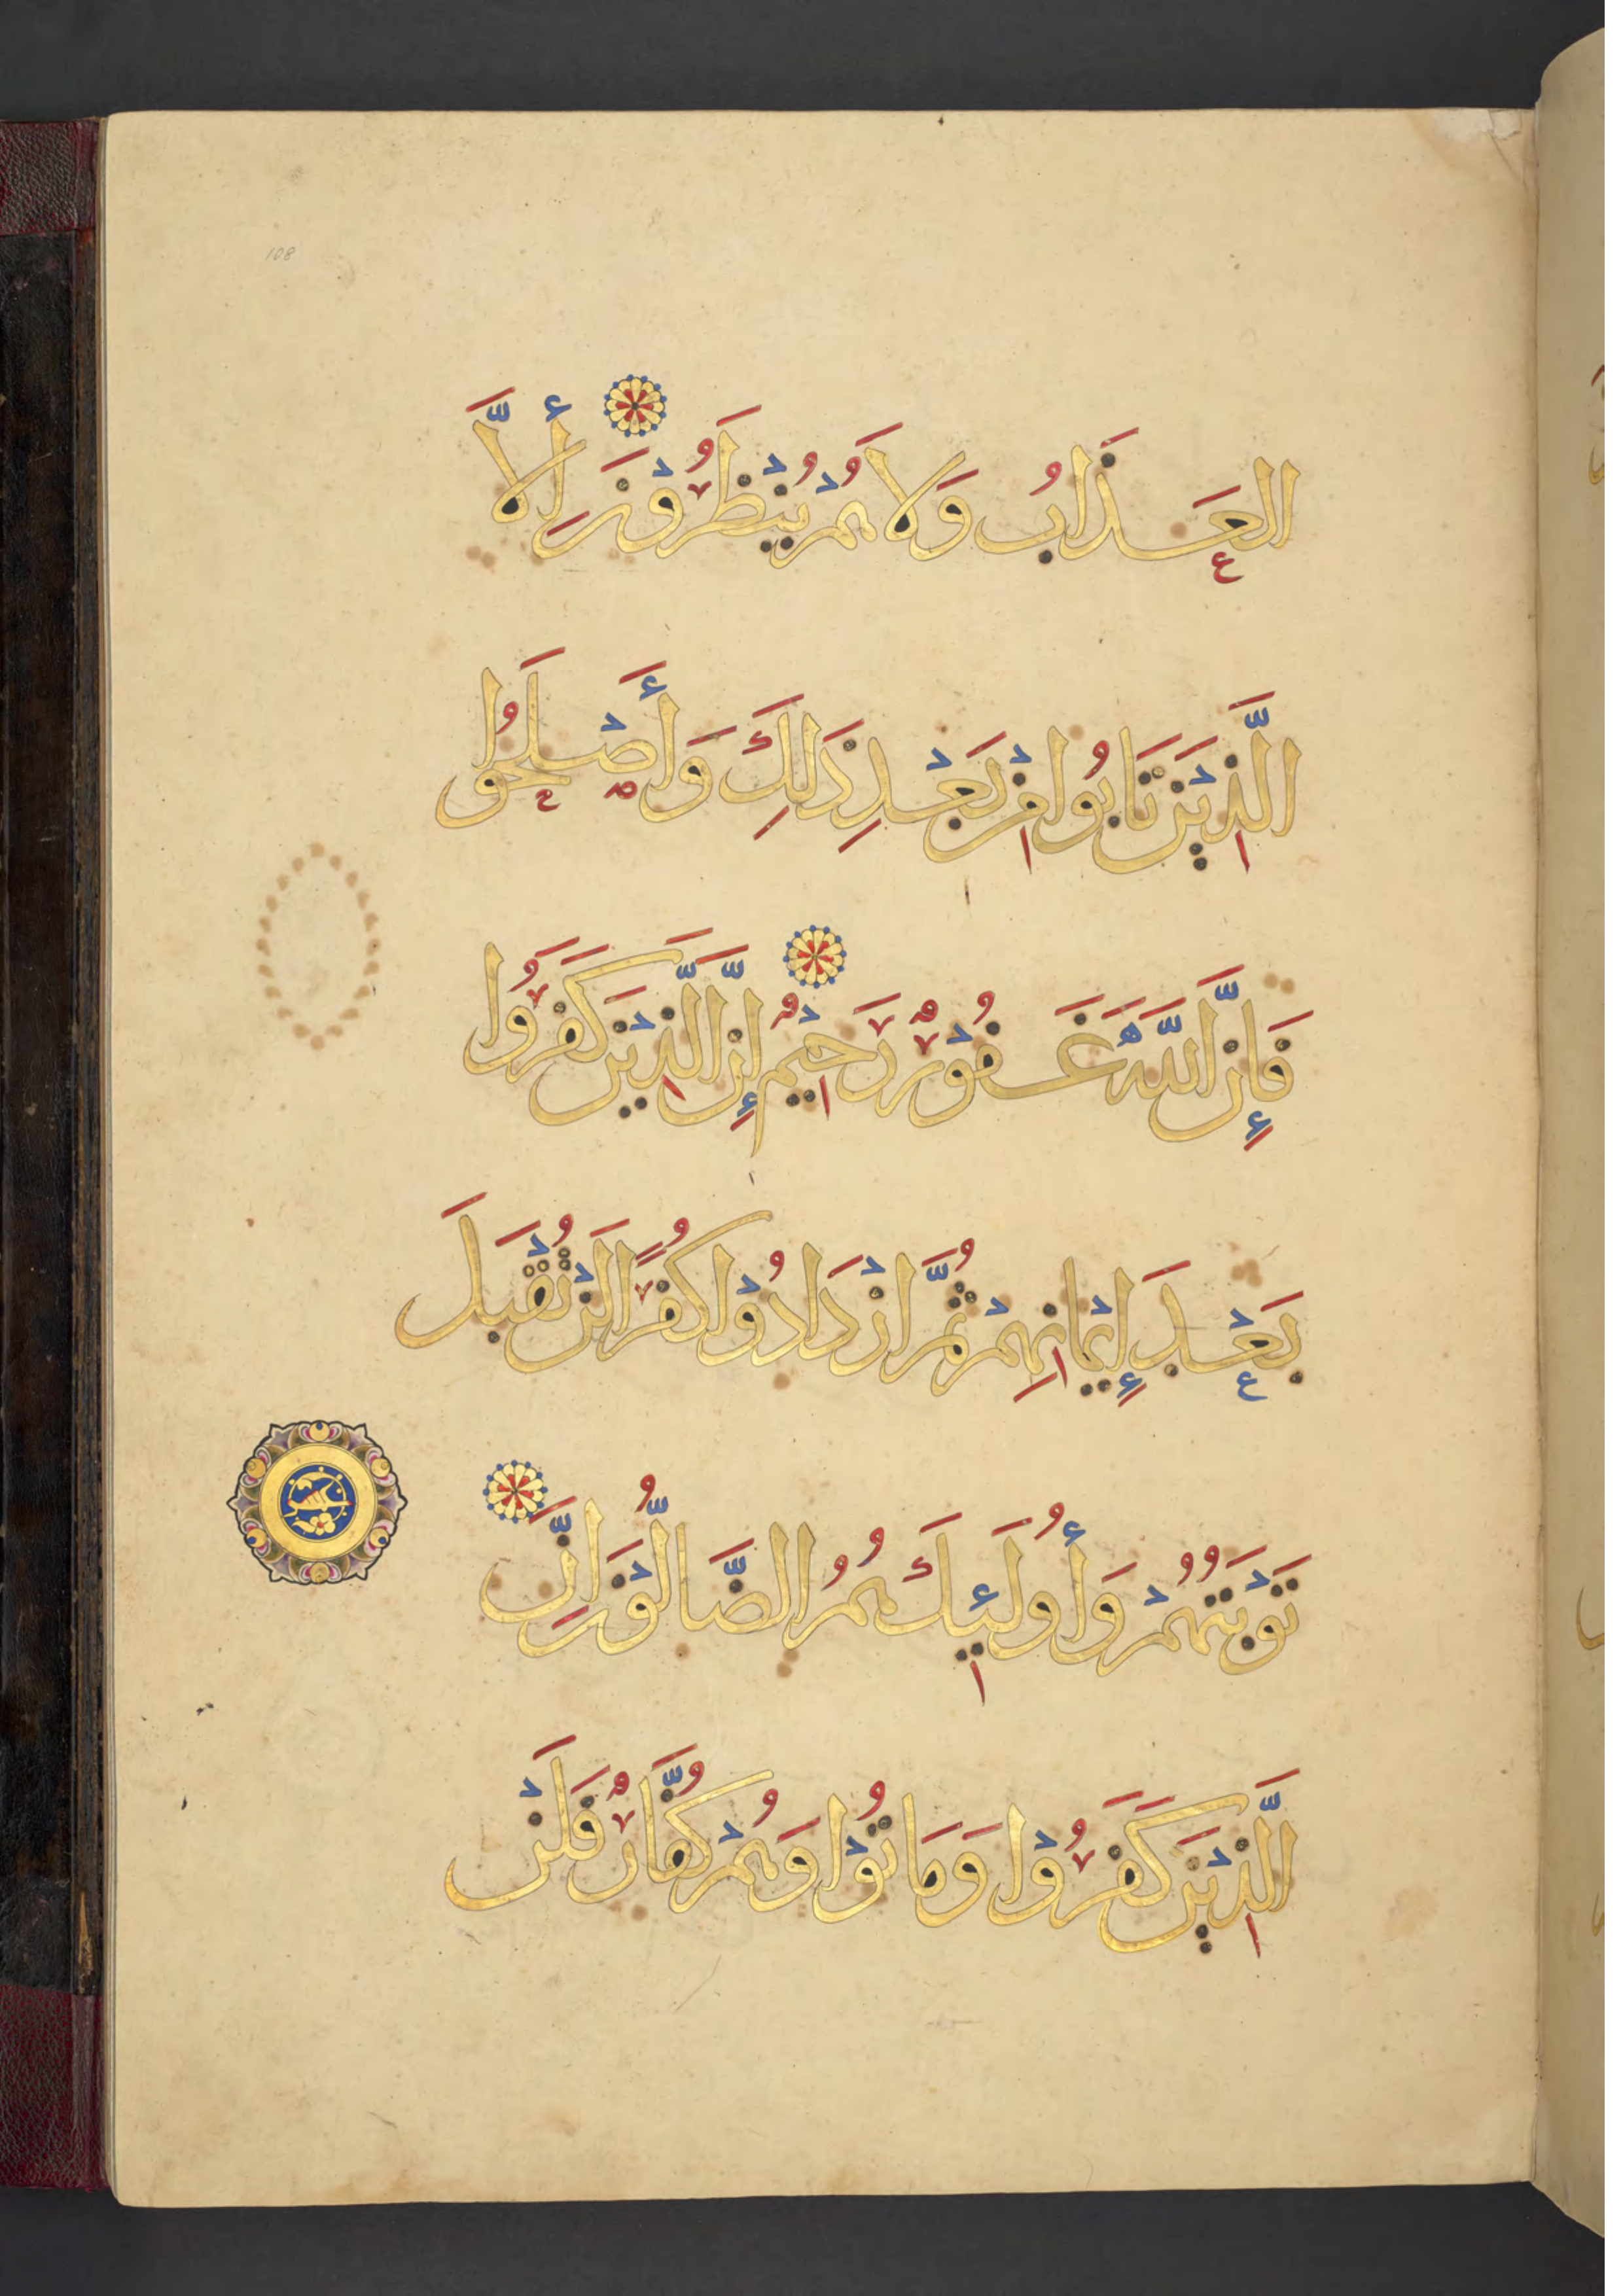 108
العَذَابُ وَلَا هُمْ يُنْظَرُوْنَ إِلَّا
الَّذِيْنَ تَابُوا مِنْ بَعْدِ ذَلِكَ وَأَصْلَحُوا
فَإِنَّ اللَّهَ غَفُوْرٌ رَحِيْمٌ إِنَّ الَّذِيْنَ كَفَرُوا
بَعْدَ إِيْمَانِهِمْ ثُمَّ ازْدَادُوْا كُفْرًا لَنْ تُقْبَلَ
تَوْبَتُهُمْ وَأُولَئِكَ هُمُ الضَّالُّوْنَ إِنَّ
الَّذِيْنَ كَفَرُوْا وَمَاتُوْا وَهُمْ كُفَّارٌ فَلَنْ